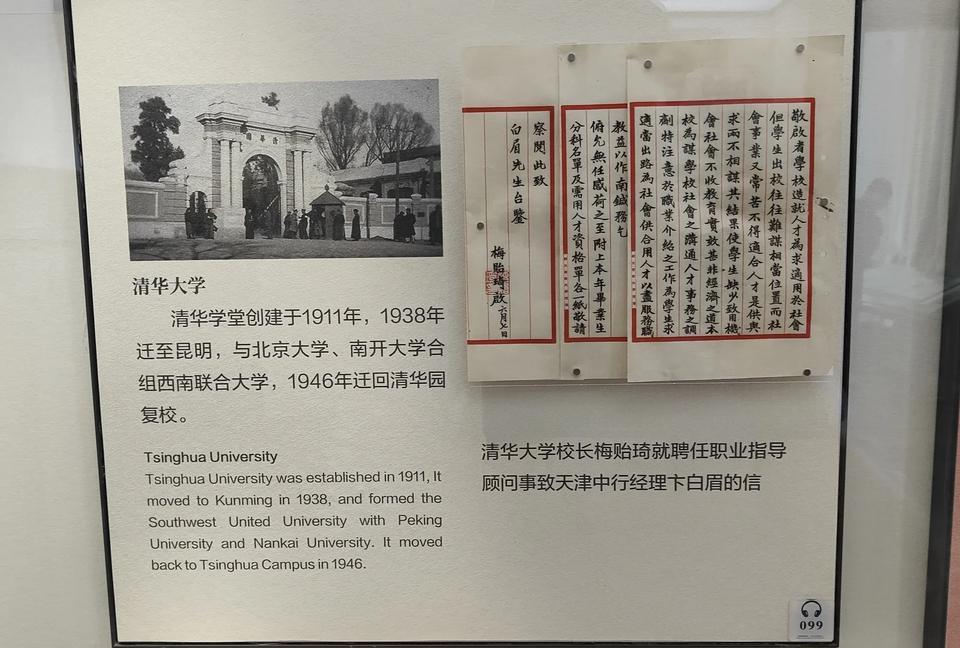 清华大学
清华学堂创建于1911年，1938年
迁至昆明，与北京大学、南开大学合
组西南联合大学，1946年迁回清华园
复校。
Tsinghua University
Tsinghua University was established in 1911, It
moved to Kunming in 1938, and formed the
Southwest United University with Peking
University and Nankai University. It moved
back to Tsinghua Campus in 1946.
敬啟者學校造就人才為求適用於社會
但學生出校往往難謀相當位置而社
會事業又常苦不得適合人才是供與
求兩不相謀其結果使學生缺少致用機
會社會不收教育實效甚非經濟之道本
校為謀學校社會之溝通人才事務之調
劑特注意於職業介紹之工作為學生求
適當出路為社會供合用人才以盡服務職
教益以作南鍼務乞
俯允無任感荷之至附上本年畢業生
分科名單及需用人才資格單各一紙敬請
察閱此致
白眉先生台鑒
梅貽琦啟 六月七日
清华大学校长梅贻琦就聘任职业指导
顾问事致天津中行经理卞白眉的信
099